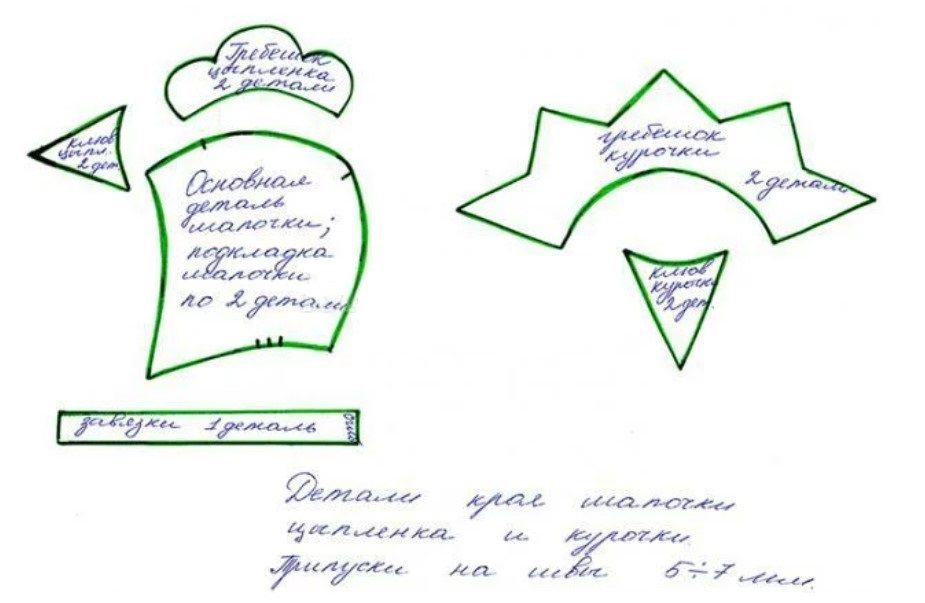 Гребешок
цыпленка
2 детали
клюв
цыпл.
2 дет.
Основная
деталь
шапочки;
подкладка
шапочки
по 2 детали
гребешок
курочки
2 детали
клюв
курочки
2 дет.
завязки 1 деталь
Детали кроя шапочки
цыпленка и курочки.
Припуски на швы 5÷7 мм.